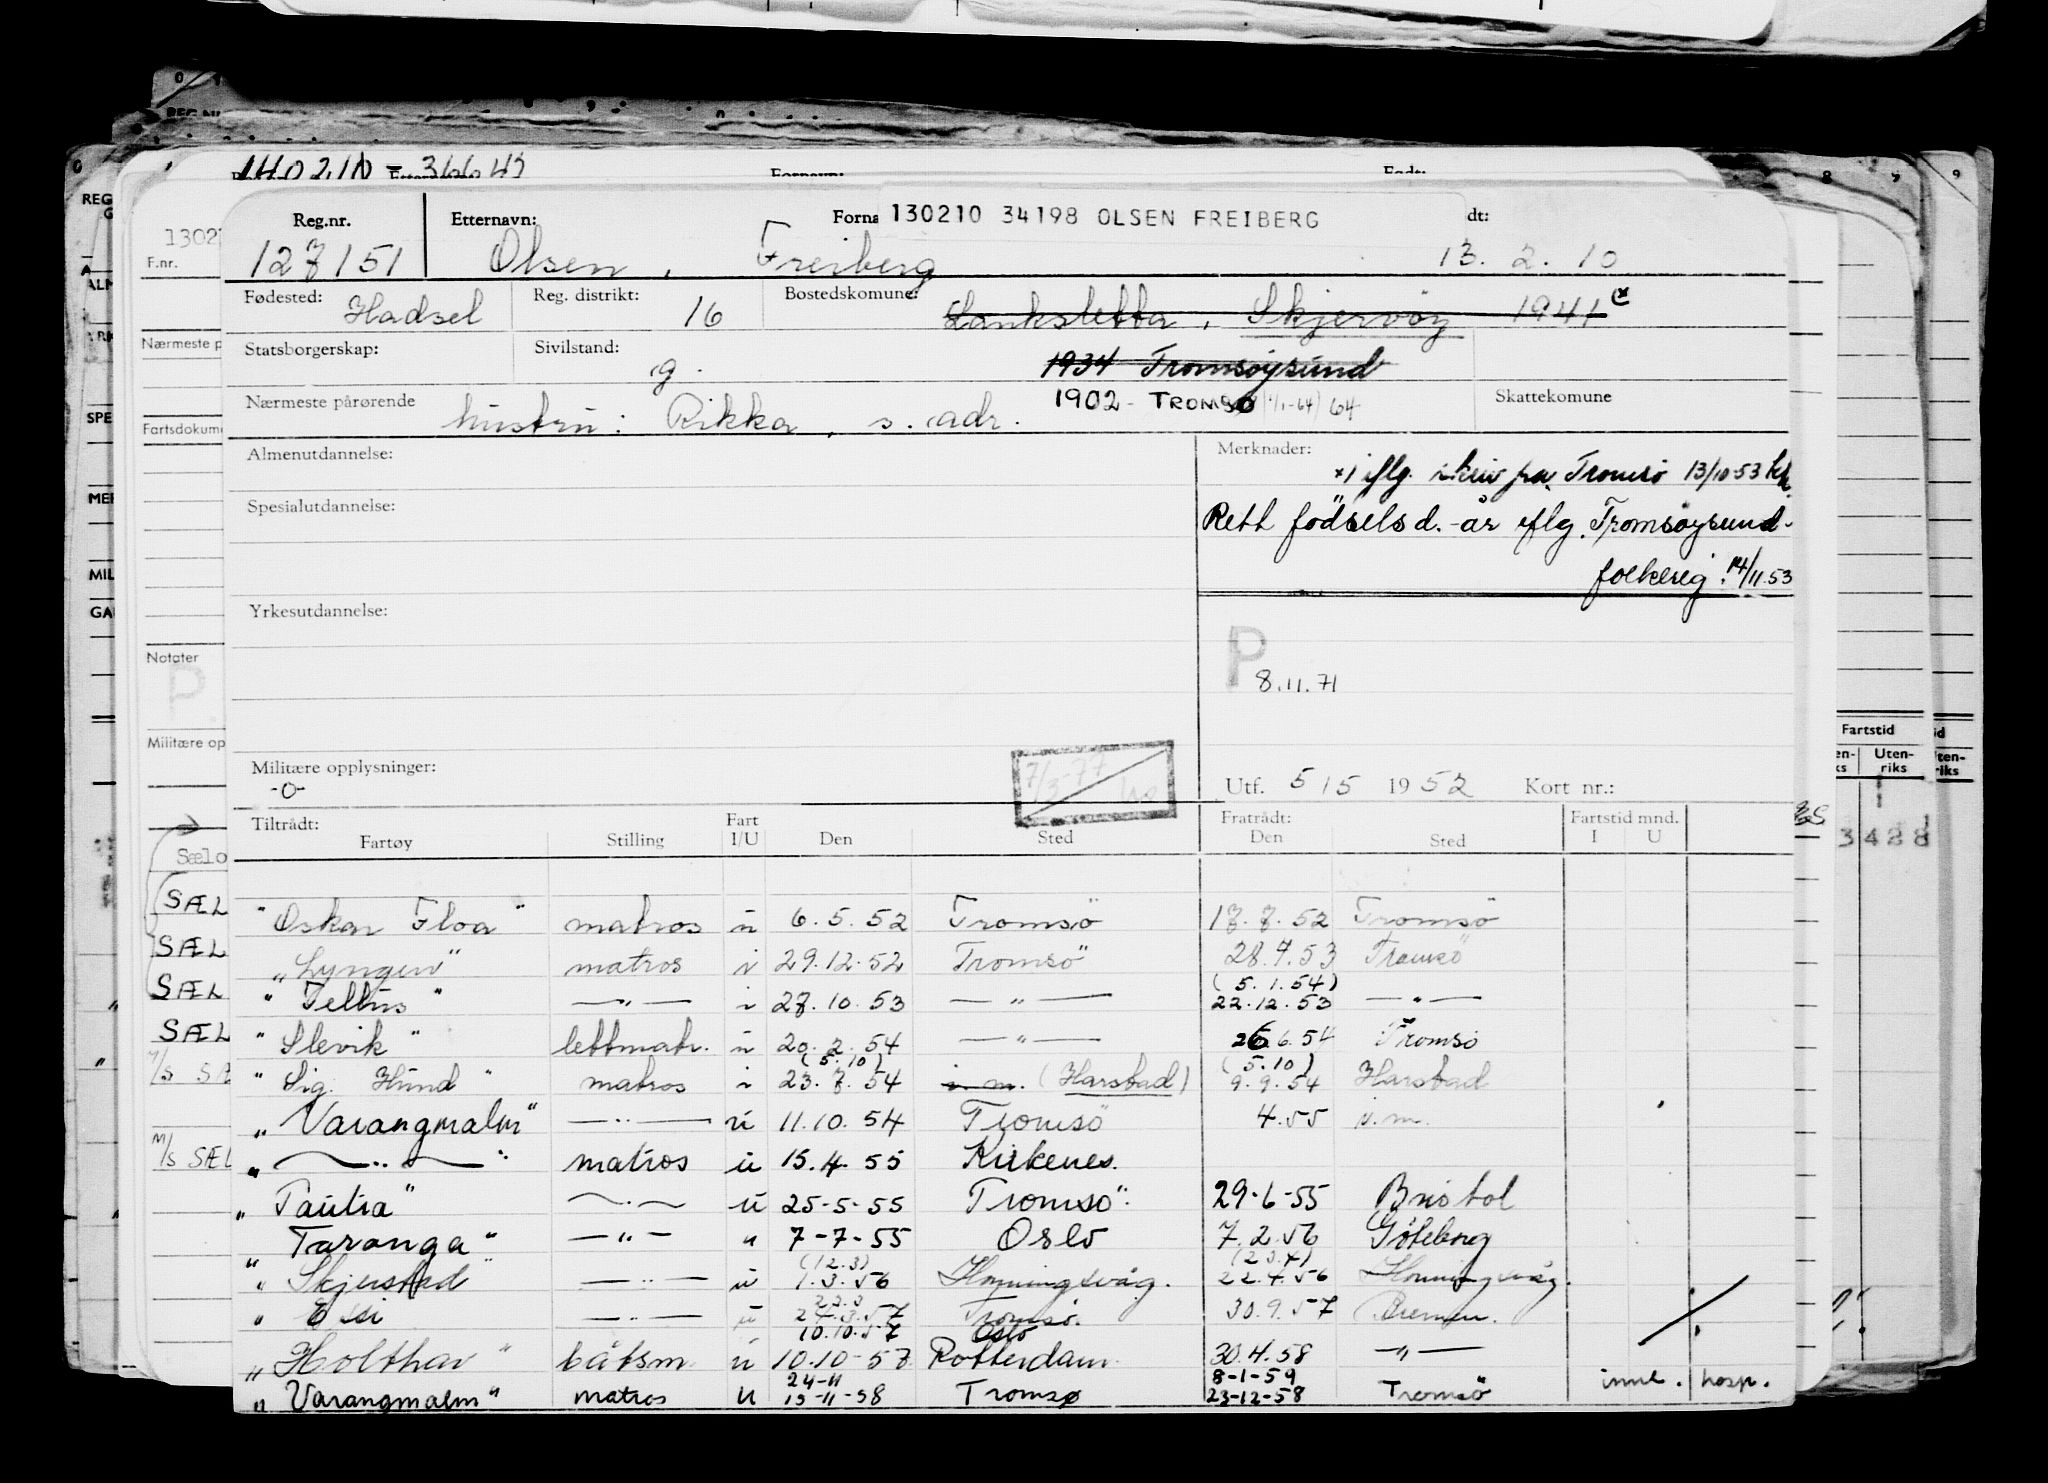 140210 - 36643
Fornavn: Født:
Reg.nr. Etternavn: Forna 130210 34198 OLSEN FREIBERG dt:
127151 Olsen, Freiberg 13. 2. 10
Fødested: Hadsel Reg. distrikt: 16 Bostedskomune: Lanksletta, Skjervøy 1941 x
Statsborgerskap: Sivilstand: g. 1934 Tromsøysund
Nærmeste pårørende hustru: Rikka, s. adr. 1902 - TROMSØ (1/1-64) 64 Skattekomune
Almenutdannelse: Merknader:
x) iflg. skriv fra Tromsö 13/10-53
Spesialutdannelse: Rett födselsd.-år iflg. Tromsøysund
folkereg. 14/11.53
Yrkesutdannelse:
P
8.11.71
Militære opplysninger: 7/3-77
-0- Utf. 5/5 1952 Kort nr.:
Tiltrådt: Fart Fratrådt: Fartstid mnd.
Fartøy Stilling I/U Den Sted Den Sted I U
SÆL "Oskar Floa" matros u 6.5.52 Tromsö 17.7.52 Tromsö
SÆL "Lyngen" matros i 29.12.52 Tromsö 28.7.53 Tromsö
(5.1.54)
SÆL "Tellus" —"— i 27.10.53 —"— 22.12.53 —"—
SÆL "Slevik" lettmatr. u 20.2.54 —"— 26.6.54 Tromsö
(5.10) (5.10)
M/S "Sig. Hund" matros i 23.7.54 i.m. (Harstad) 9.9.54 Harstad
"Varangmalm" —"— u 11.10.54 Tromsö 4.55 i.m.
M/S SÆL "—"—" matros u 15.4.55 Kirkenes.
"Tautra" —"— u 25-5-55 Tromsö 29-6-55 Bristol
"Taranga" —"— " 7-7-55 Oslo 7.2.56 Göteborg
(12.3) (23.4)
"Skjerstad" —"— u 1.3.56 Honningsvåg. 22.4.56 Honningsvåg.
"Elsi" —"— u 24.3.57 Tromsö. 30.9.57 Bremen.
10.10.57 Oslo
"Holthav" båtsm. u 10.10-57 Rotterdam. 30.4.58 —"—
24-11 8-1-59
"Varangmalm" matros u 15-11-58 Tromsø 23-12-58 Tromsö innl. hosp.
F.nr.
Nærmeste p
Fartsdokum
Notater
P
Militære op
Sælo
Fartstid
Uten-
riks
3428